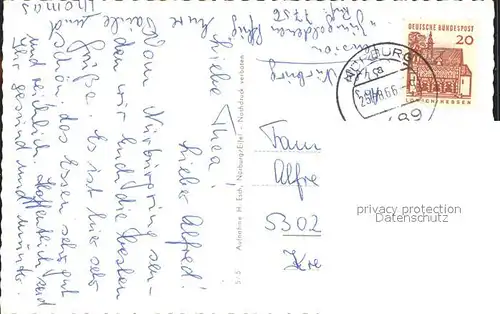 Liebe Thea!
Lieber Alfred!
Vom Nürburgring sen-
den wir Euch die besten
Grüße. Es ist hier sehr
schön, das Essen sehr gut
und reichlich. Hoffentlich seid
Ihr gesund und munter.
Thomas
Nürburg
Aufnahme H. Esch, Nürburg/Eifel - Nachdruck verboten
DEUTSCHE BUNDESPOST
20
LORSCH/HESSEN
NÜRBURG
Frau
Alfre
5302
privacy protection
Datenschutz